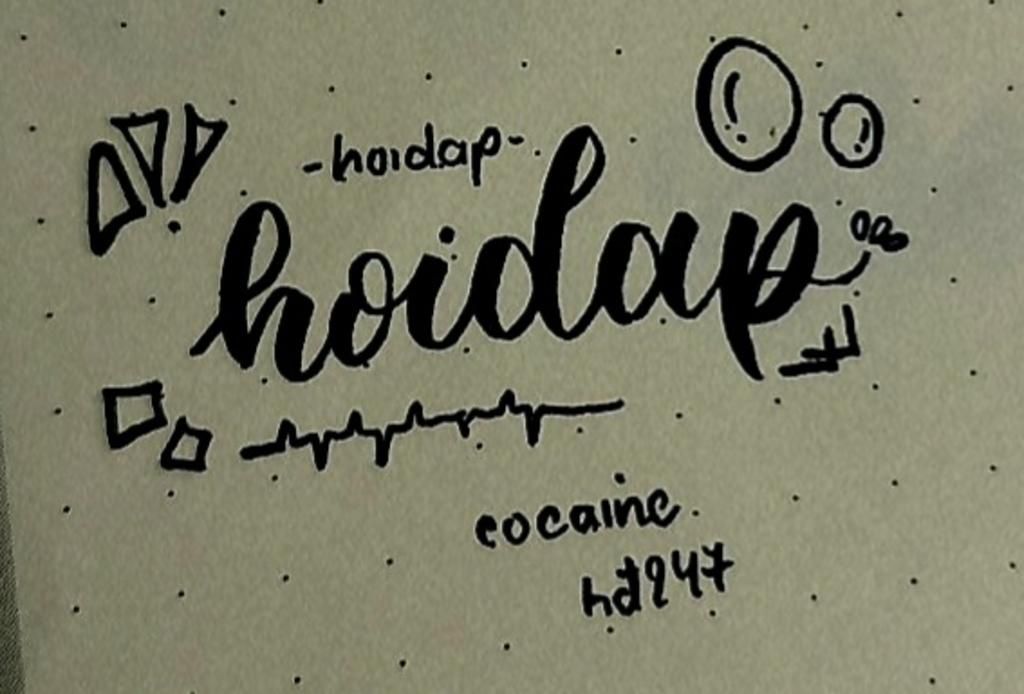 -hoidap-
hoidap
cocaine.
hđ247